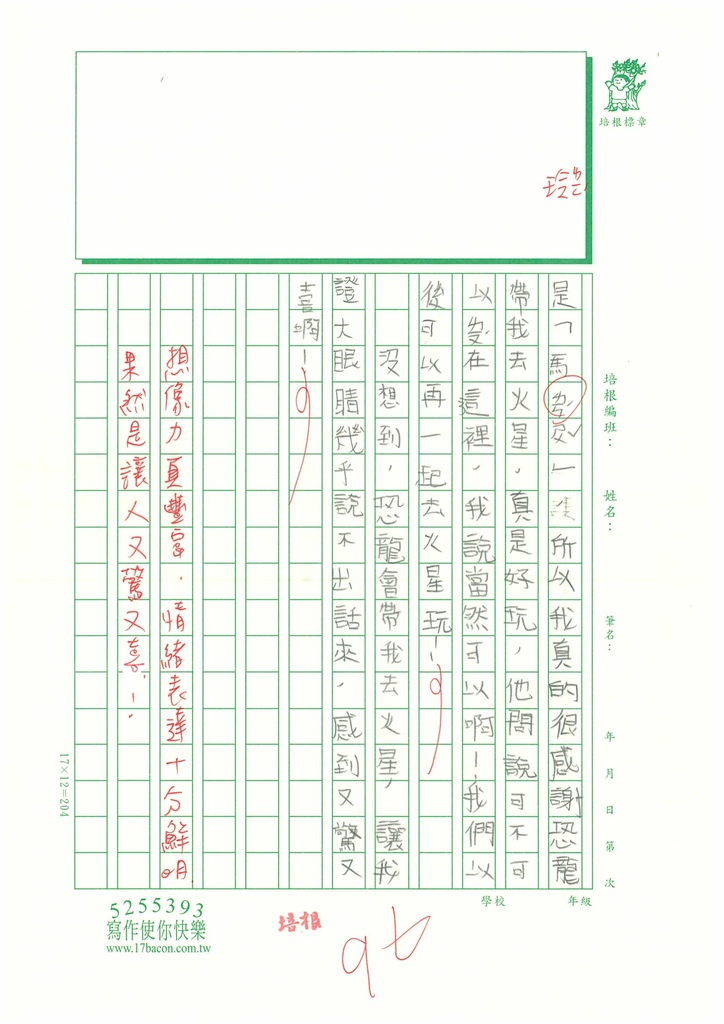 培根標章
是「馬ㄌㄞˊㄦˇ」所以我真的很感謝恐龍
帶我去火星，真是好玩，他問說可不可
以ㄌㄞˊ在這裡，我說當然可以啊！我們以
後可以再一起去火星玩！
沒想到，恐龍會帶我去火星，讓我
證大眼睛幾乎說不出話來，感到又驚又
喜啊！
想像力真豐富．情緒表達十分鮮明
果然是讓人又驚又喜．！．
培根編班：
姓名：
筆名：
年 月 日 第 次
17×12=204
學校 年級
5255393
寫作使你快樂
www.17bacon.com.tw
培根